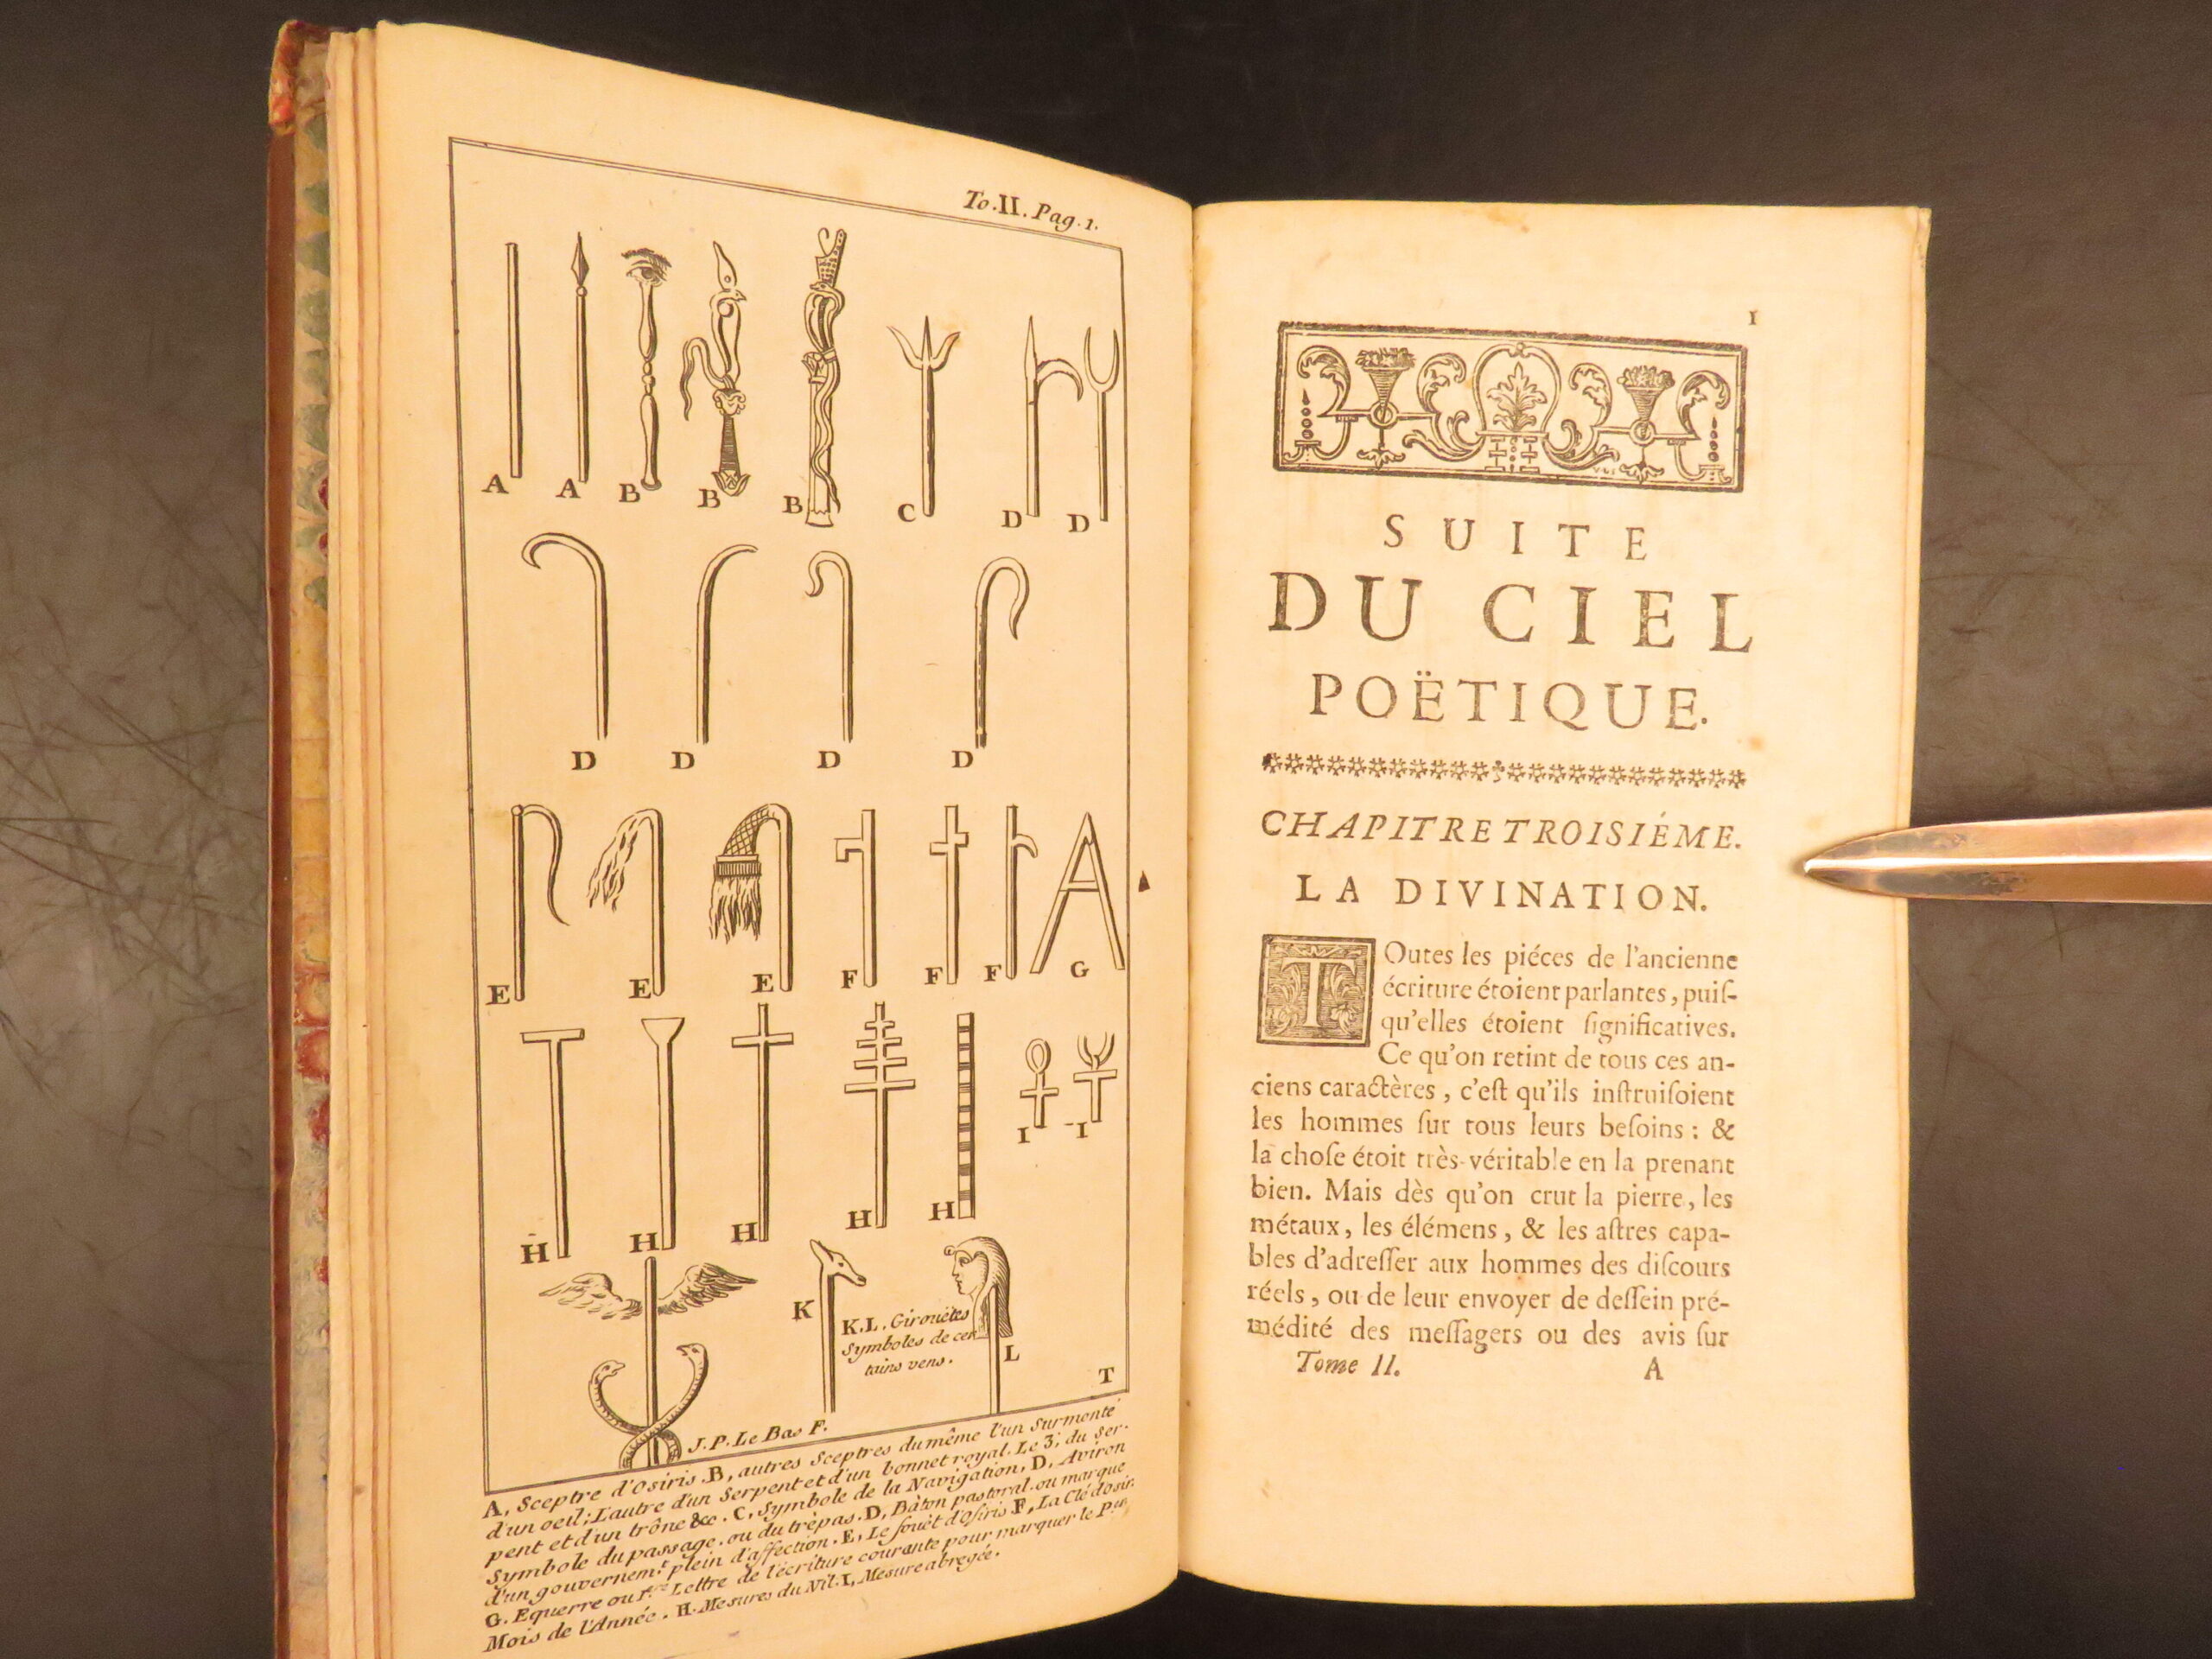 To.II. Pag. 1.
A A B B B C D D
D D D D
E E E F F F G
H H H H H I I
K
K.L. Girouëtes
Symboles de cer
tains vens.
L
T
J.P. Le Bas F.
A, Sceptre d'Osiris. B, autres Sceptres du même l'un Surmonté
d'un oeil; L'autre d'un Serpent et d'un bonnet royal. Le 3e. du Ser-
pent et d'un trône &c. C, Symbole de la Navigation, D, Aviron
Symbole du passage, ou du trépas. D, Bâton pastoral. ou marque
d'un gouvernemt. plein d'affection. E, Le fouët d'Osiris F, La Clé d'Osir.
G. Equerre ou 1ere Lettre de l'écriture courante pour marquer le Per.
Mois de l'Année. H. Mesures du Nil. I, Mesure abregée.
1
SUITE
DU CIEL
POËTIQUE.
CHAPITRE TROISIÉME.
LA DIVINATION.
TOutes les piéces de l'ancienne
écriture étoient parlantes, puiſ-
qu'elles étoient ſignificatives.
Ce qu'on retint de tous ces an-
ciens caractères, c'eſt qu'ils inſtruiſoient
les hommes ſur tous leurs beſoins : &
la choſe étoit très-véritable en la prenant
bien. Mais dès qu'on crut la pierre, les
métaux, les élémens, & les aſtres capa-
bles d'adreſſer aux hommes des diſcours
réels, ou de leur envoyer de deſſein pré-
médité des meſſagers ou des avis ſur
Tome II. A